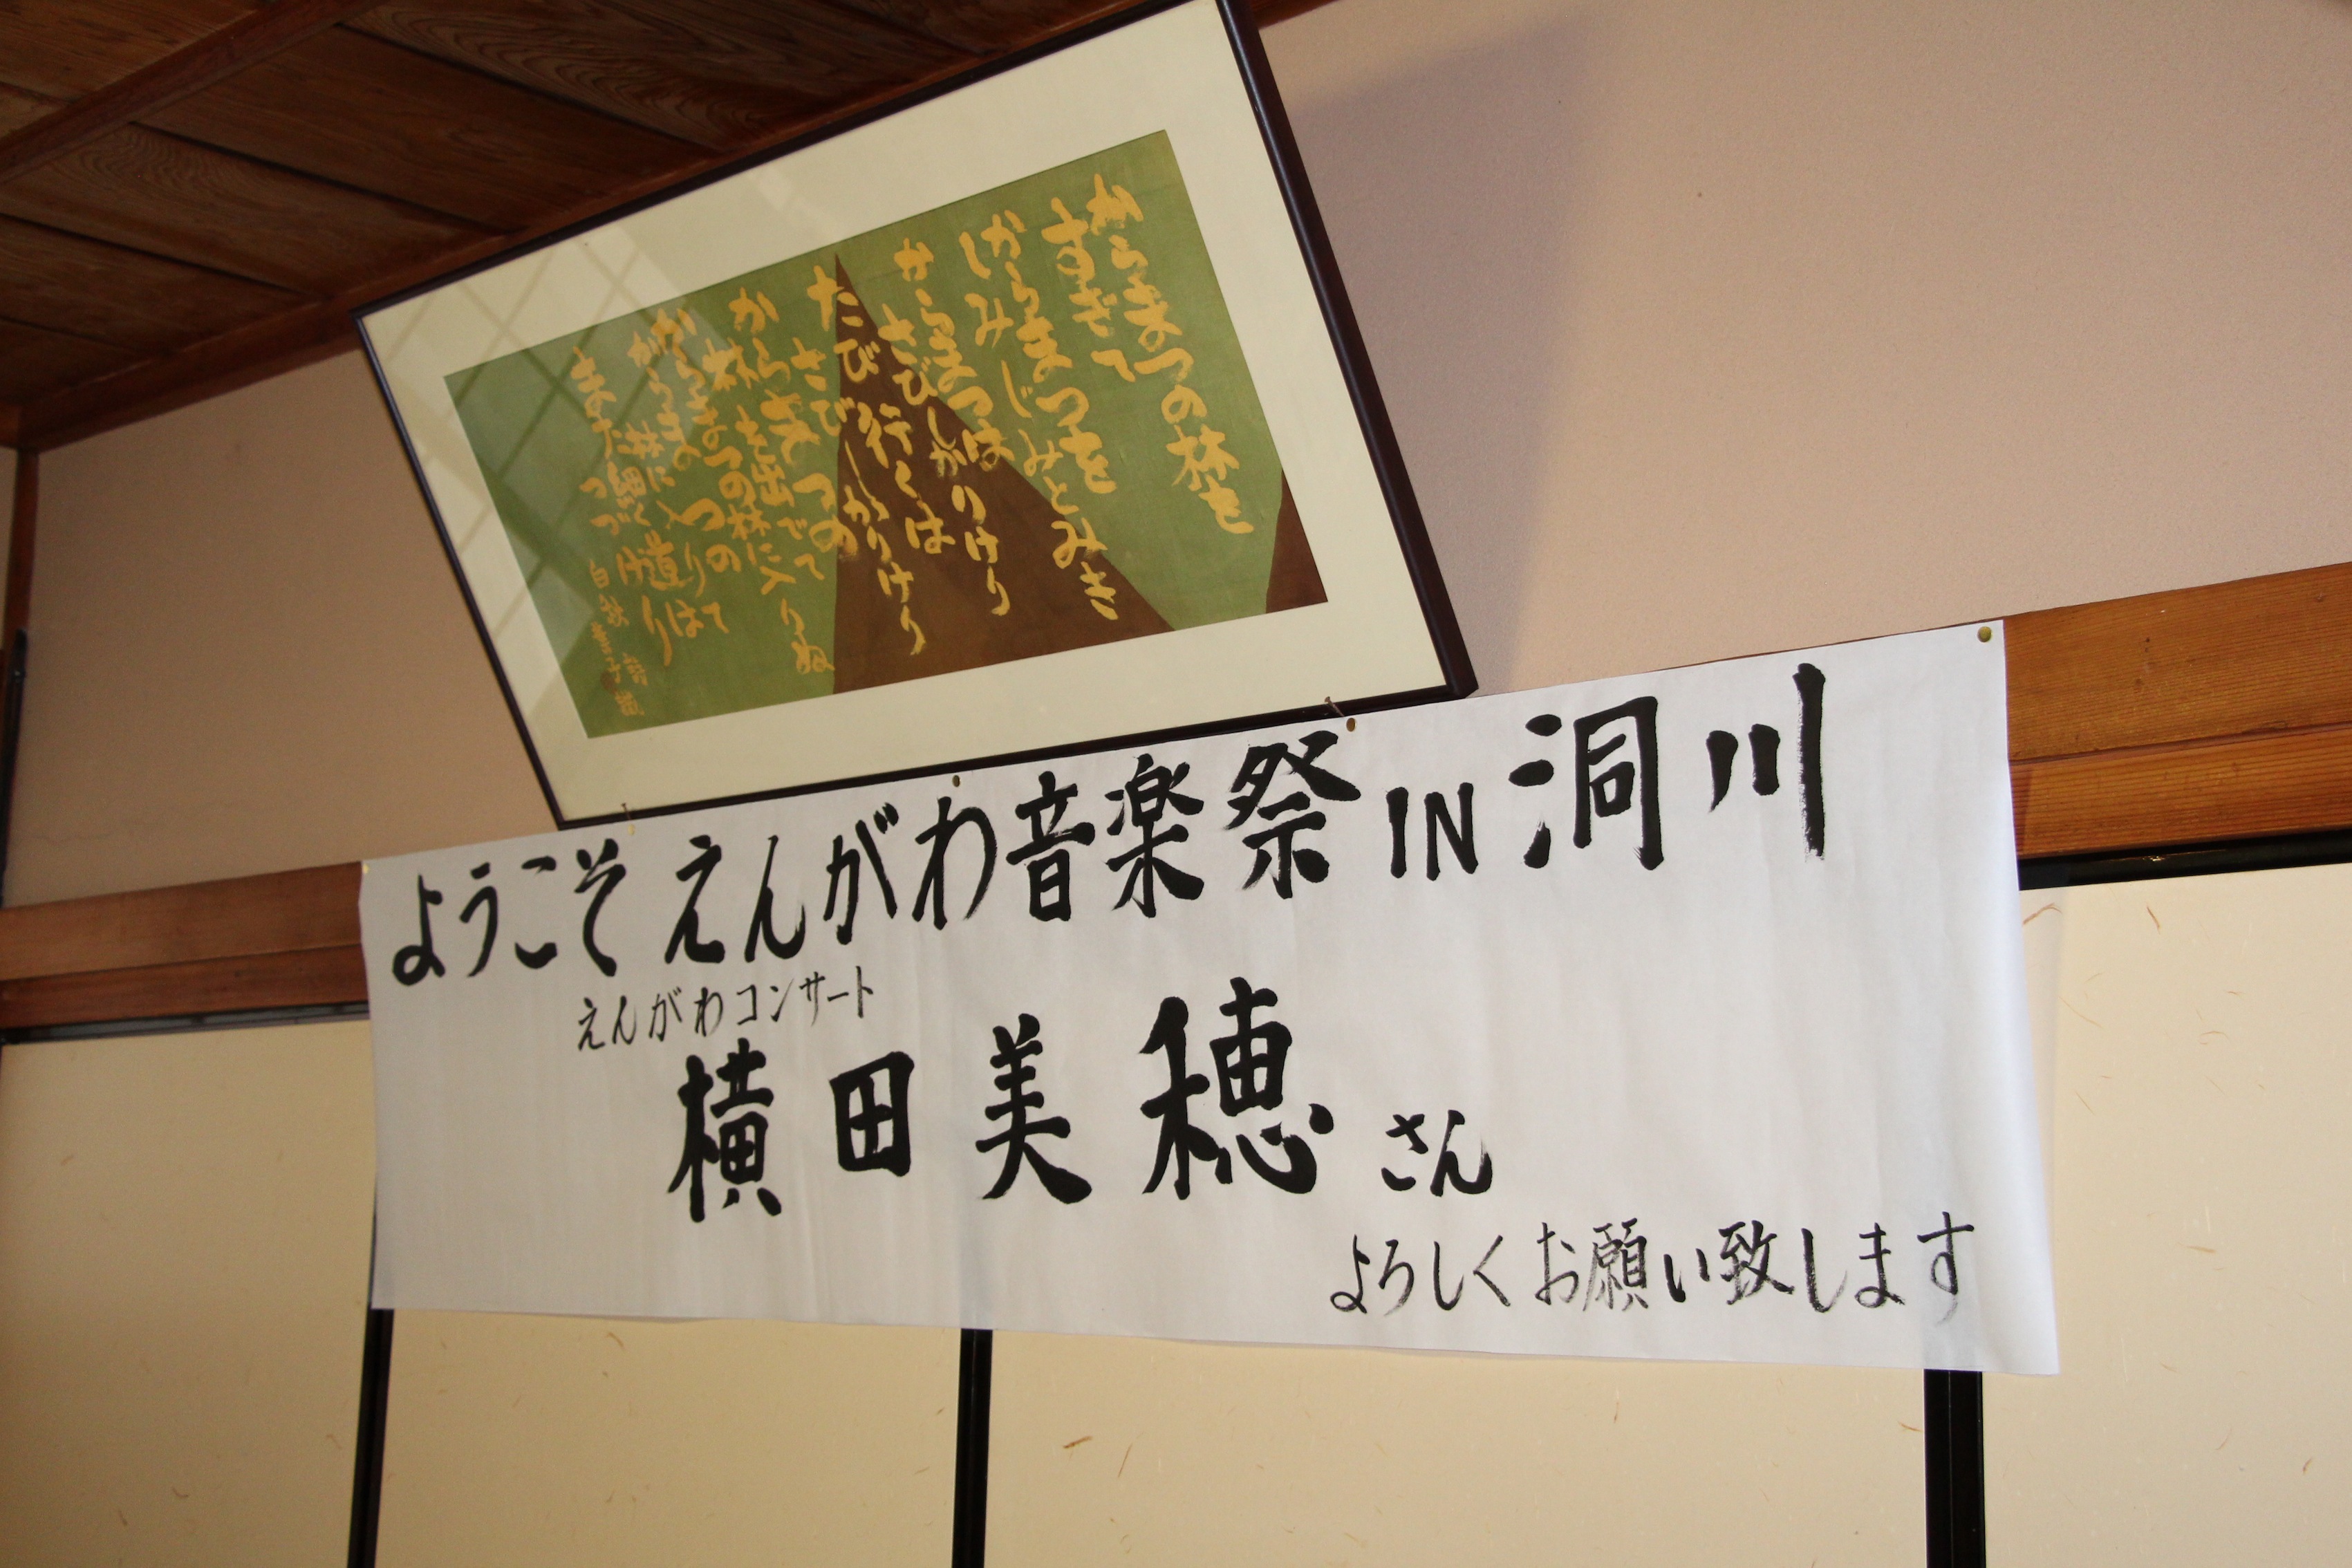 からまつの林を
すぎて
からまつを
しみじみとみき
からまつは
さびしかりけり
たび行くは
さびしかりけり
からまつの
林を出でて
からまつの林に入りぬ
からまつの
林に入りて
また細く道は
つづけり
白秋 詩
ようこそ えんがわ音楽祭 IN 洞川
えんがわコンサート
横田美穂さん
よろしくお願い致します